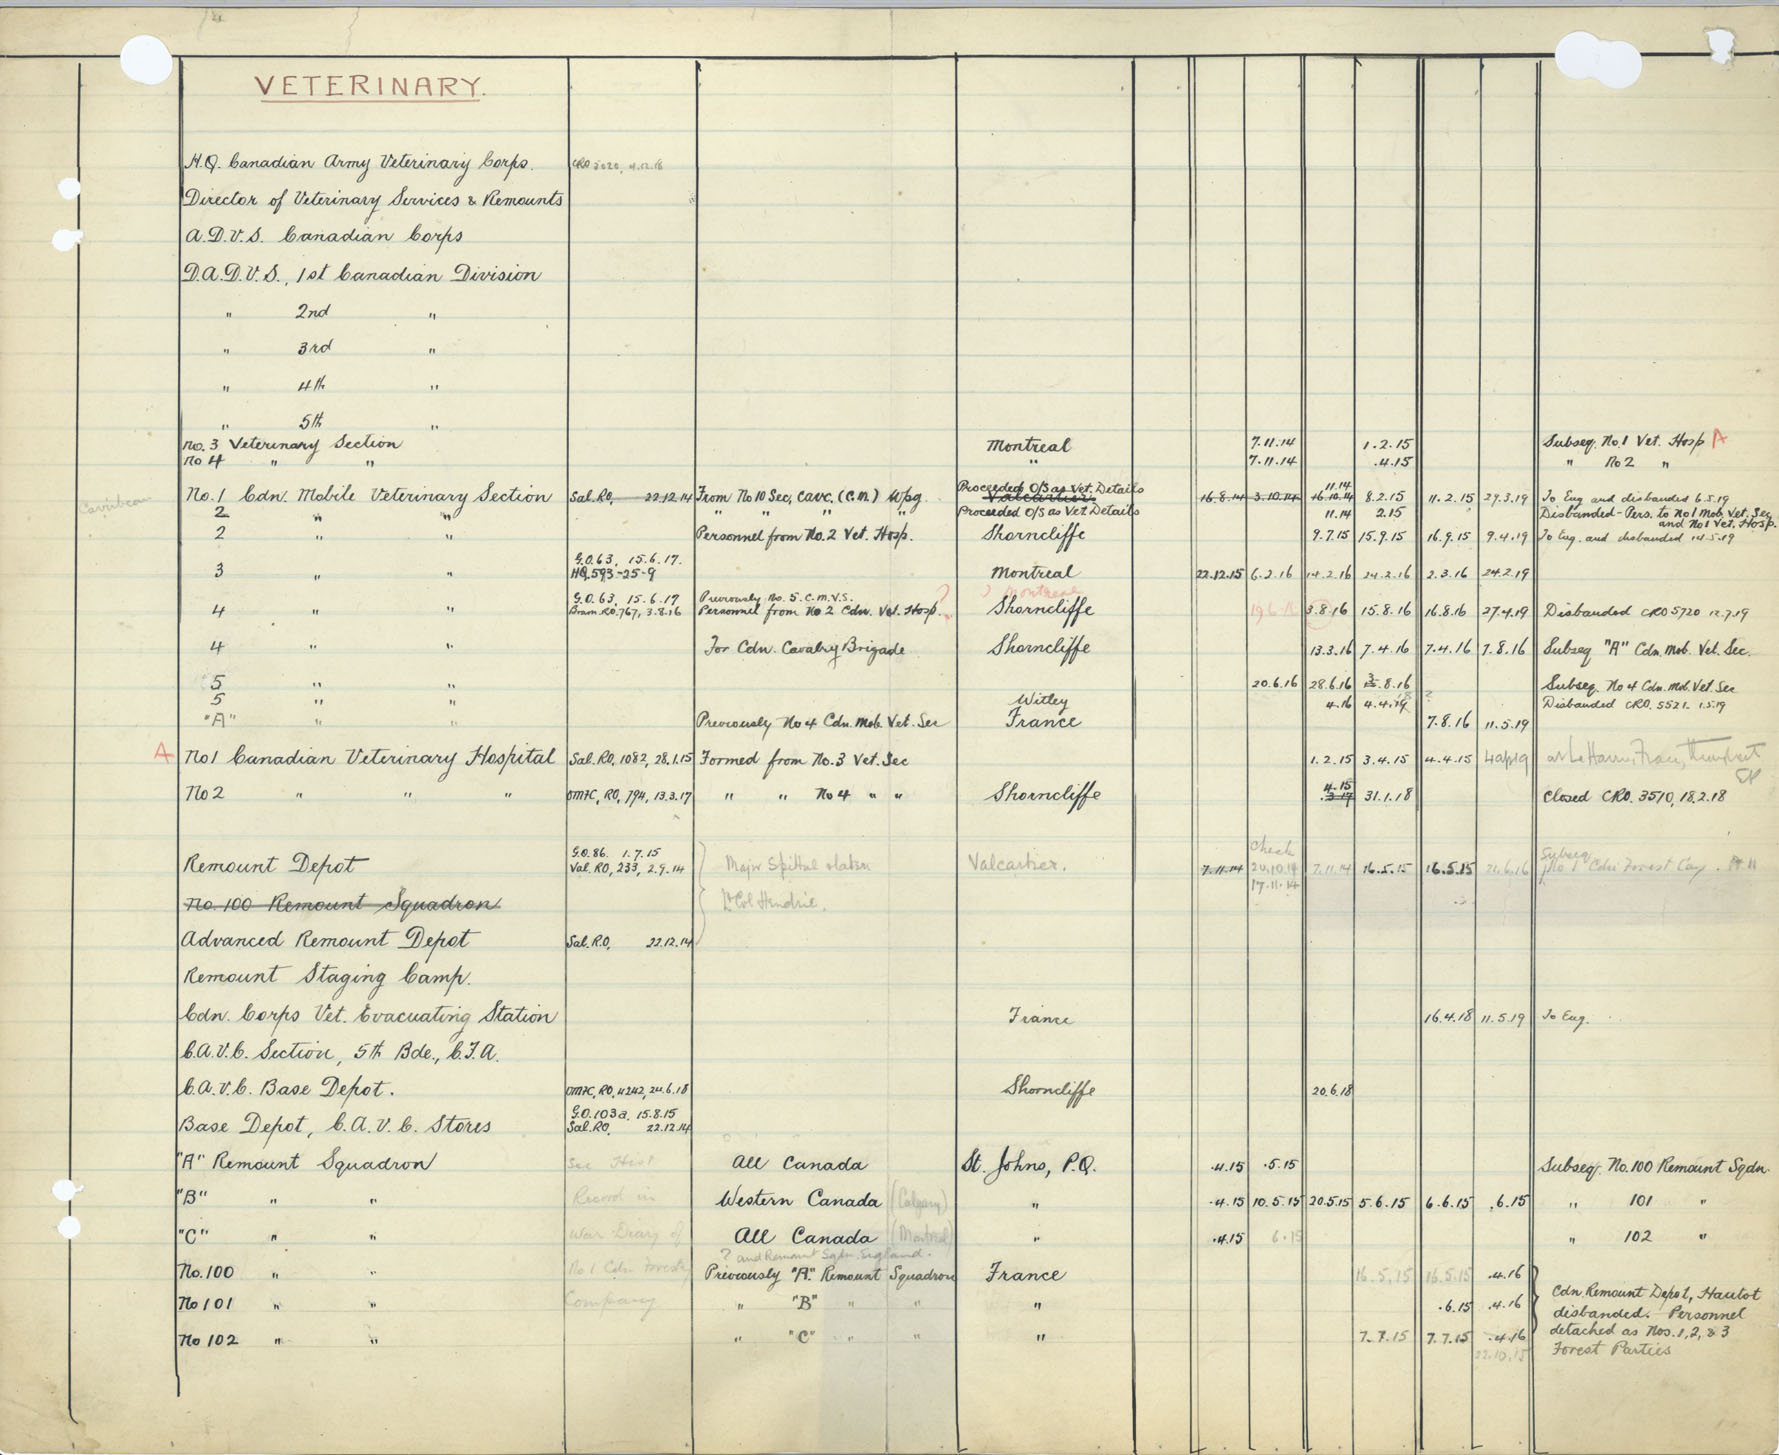 VETERINARY.
H.Q. Canadian Army Veterinary Corps. 4.12.18
Director of Veterinary Services & Remounts
A.D.V.S. Canadian Corps
D.A.D.V.S., 1st Canadian Division
" 2nd "
" 3rd "
" 4th "
" 5th "
No. 3 Veterinary Section Montreal 7.11.14 1.2.15 Subseq. No.1 Vet. Hosp A
No 4 " " " 7.11.14 .4.15 " No 2 "
Proceeded O/S as Vet. Details 11.14
No. 1 Cdn. Mobile Veterinary Section Sal. R.O. 22.12.14 From No 10 Sec, C.A.V.C. (C.M.) Wpg. Valcartier 16.8.14 3.10.14 16.10.14 8.2.15 11.2.15 29.3.19 To Eng and disbanded 6.5.19
2 " " " " " " Proceeded O/S as Vet Details 11.14 2.15 Disbanded - Pers. to No 1 Mob. Vet. Sec.
and No 1 Vet. Hosp.
2 " " Personnel from No. 2 Vet. Hosp. Shorncliffe 9.7.15 15.9.15 16.9.15 9.4.19 To Eng. and disbanded 14.5.19
G.O. 63, 15.6.17.
3 " " HQ. 593-25-9 Montreal 22.12.15 6.2.16 14.2.16 24.2.16 2.3.16 24.2.19
G.O. 63, 15.6.17 Previously No. 5. C.M.V.S. ? ? Montreal
4 " " Bram. R.O. 767, 3.8.16 Personnel from No 2 Cdn. Vet. Hosp. Shorncliffe 3.8.16 15.8.16 16.8.16 27.4.19 Disbanded CRO 5720 12.7.19
4 " " For Cdn. Cavalry Brigade Shorncliffe 13.3.16 7.4.16 7.4.16 7.8.16 Subseq "A" Cdn. Mob. Vet. Sec.
5 " " 20.6.16 28.6.16 3.8.16 Subseq. No 4 Cdn. Mob. Vet. Sec
5 " " Witley 4.16 4.4.19 ? Disbanded CRO. 5521. 1.5.19
"A" " " Previously No 4 Cdn. Mob. Vet. Sec France 7.8.16 11.5.19
A No 1 Canadian Veterinary Hospital Sal. R.O. 1082, 28.1.15 Formed from No. 3 Vet. Sec 1.2.15 3.4.15 4.4.15
No 2 " " " OMFC, RO, 794, 13.3.17 " " No 4 " " Shorncliffe 4.15 .3.17 31.1.18 Closed CRO. 3510, 18.2.18
G.O. 86. 1.7.15 Check
Remount Depot Val. RO, 233, 2.9.14 Major Spittal Valcartier. 7.11.14 20.10.14 7.11.14 16.5.15 16.5.15 21.6.16 Subseq No 1 Cdn Forest Coy.
17.11.14
No. 100 Remount Squadron Lt Col Hendrie.
Advanced Remount Depot Sal. R.O. 22.12.14
Remount Staging Camp.
Cdn. Corps Vet. Evacuating Station France 16.4.18 11.5.19 To Eng.
C.A.V.C. Section, 5th Bde., C.F.A.
C.A.V.C. Base Depot. OMFC, RO, 4242, 24.6.18 Shorncliffe 20.6.18
G.O. 103a. 15.8.15
Base Depot, C.A.V.C. Stores Sal. R.O. 22.12.14
"A" Remount Squadron See Hist All Canada St. Johns, P.Q. .4.15 .5.15 Subseq. No. 100 Remount Sqdn.
"B" " " Record in Western Canada (Calgary) " .4.15 10.5.15 20.5.15 5.6.15 6.6.15 .6.15 " 101 "
"C" " " War Diary of All Canada (Montreal) " .4.15 6.15 " 102 "
? and Remount Sqdn. England.
No. 100 " " No 1 Cdn Forestry Previously "A" Remount Squadron France 16.5.15 16.5.15 .4.16
No 101 " " Company " "B" " " " .6.15 .4.16
No 102 " " " "C" " " " 7.7.15 7.7.15 .4.16
22.10.15
Cdn. Remount Depot, Hautot
disbanded. Personnel
detached as Nos. 1, 2, & 3
Forest Parties